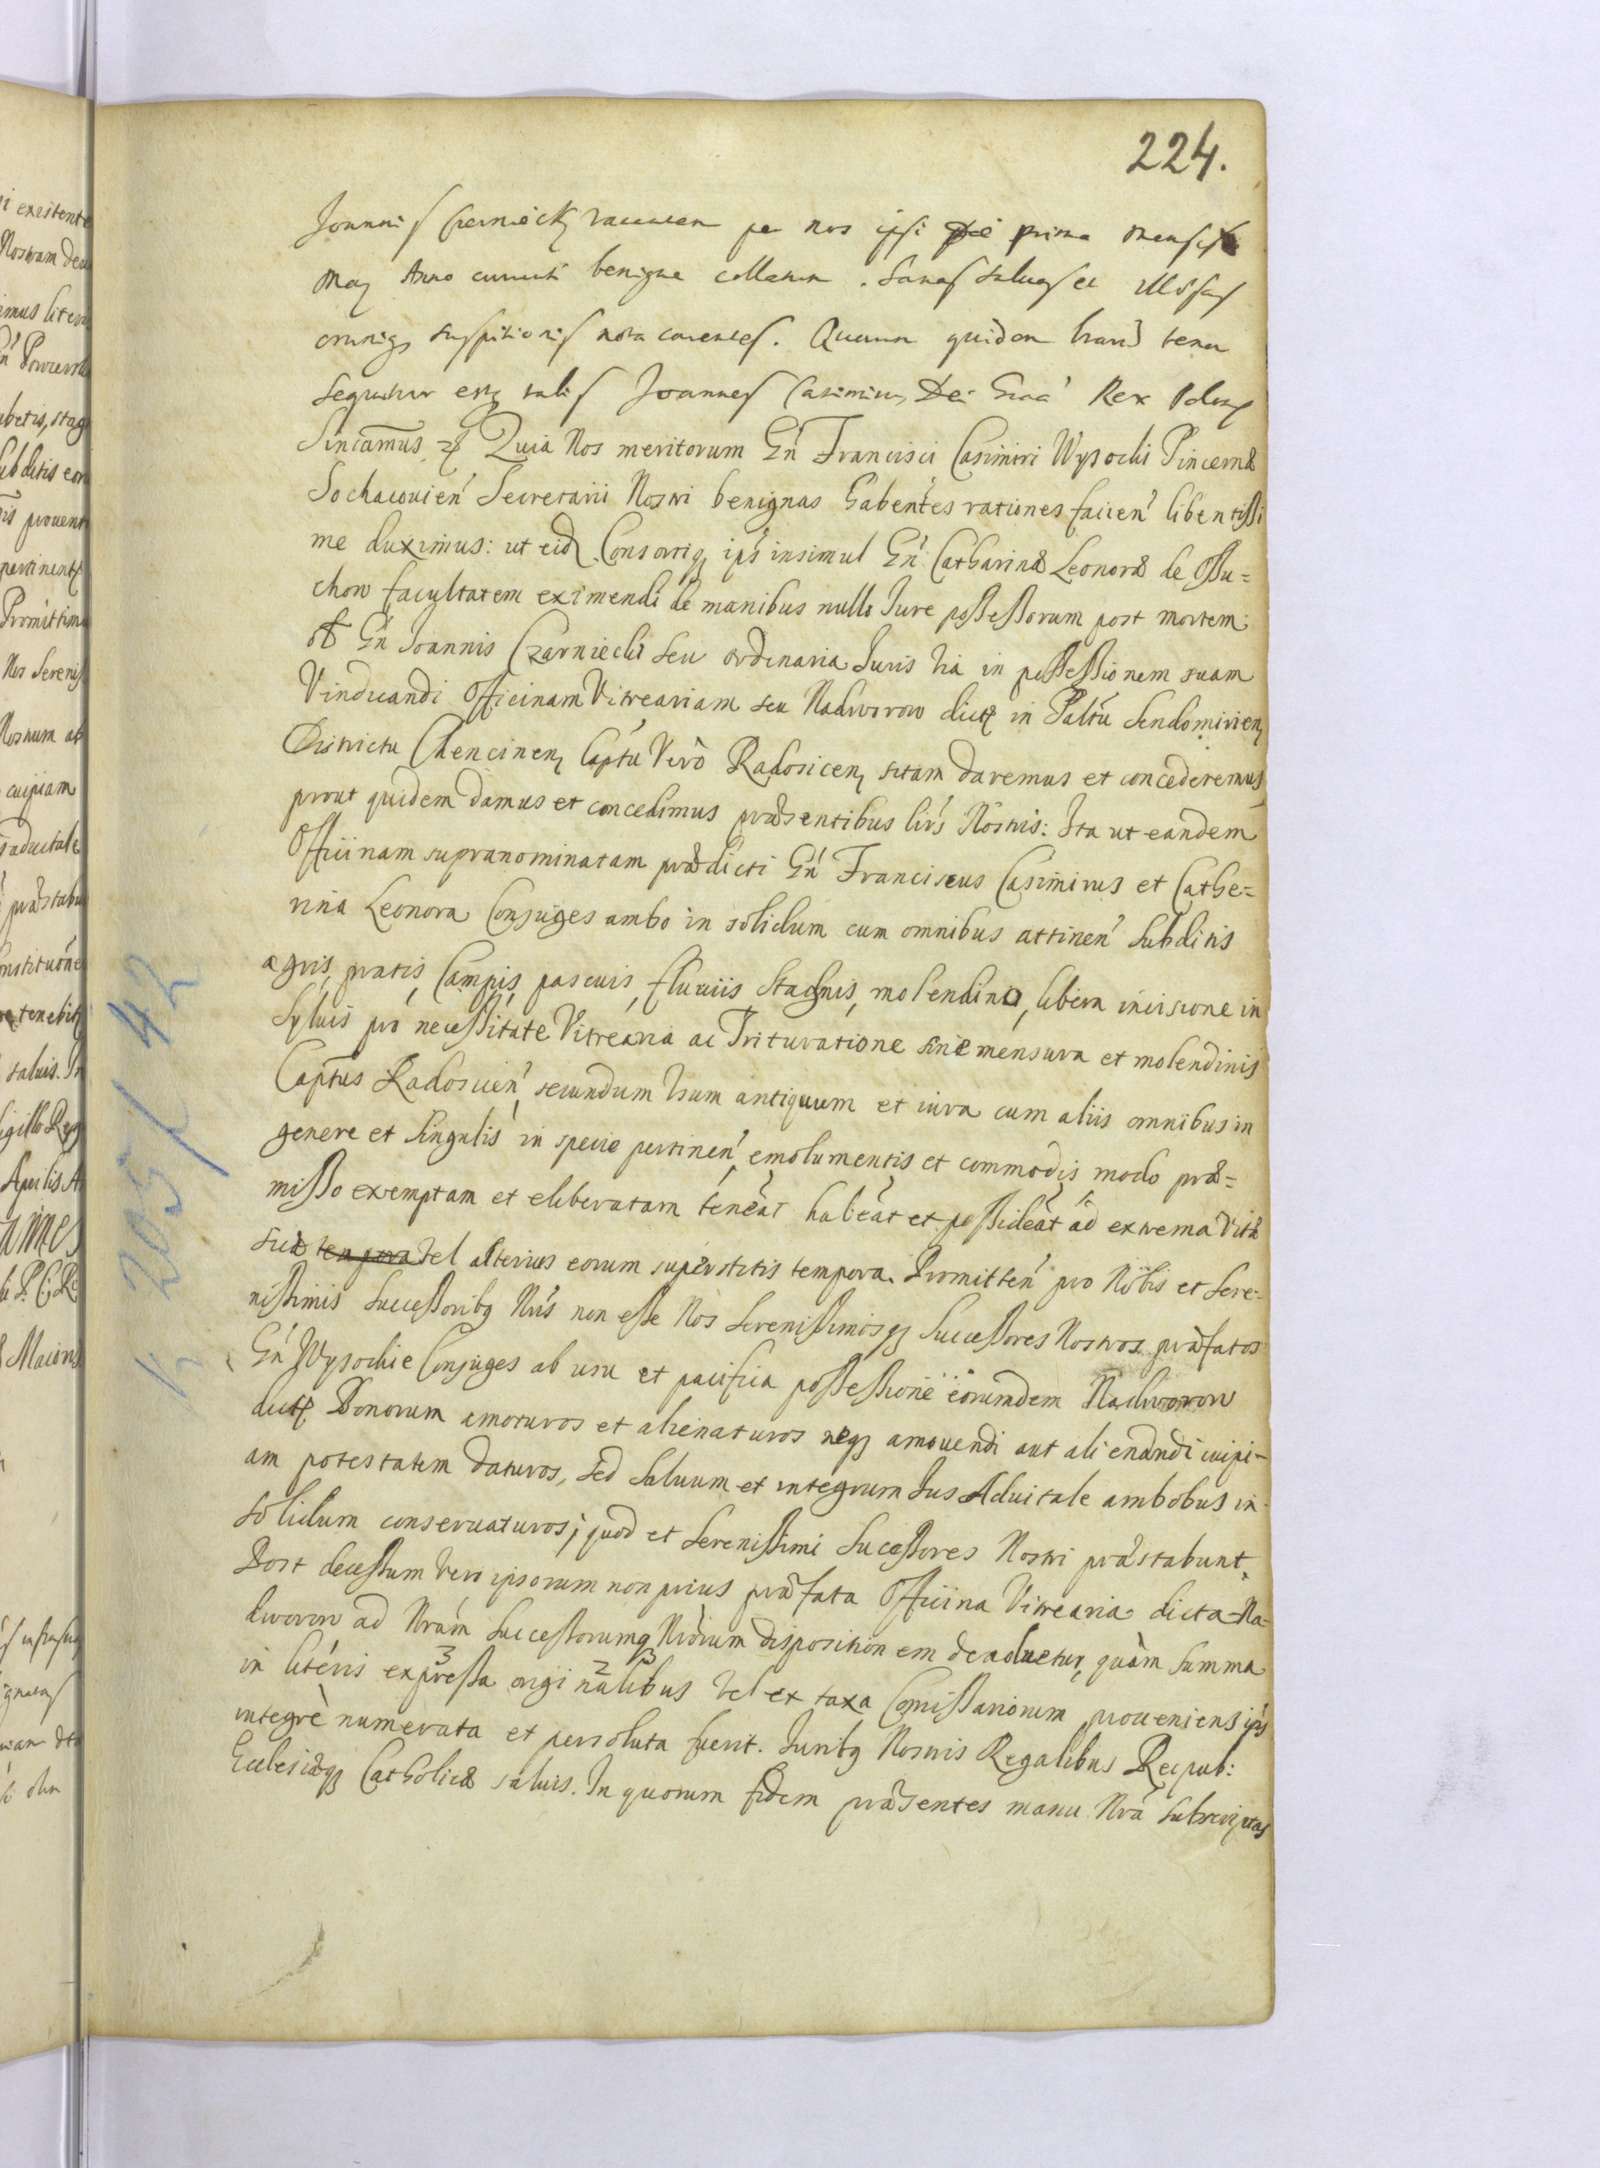 224.
Joannis Czerniecky vacuam per nos ipsi Die prima Mensis
May Anno currenti benigne collatam. Sanas saluas et illęsas
omniq suspitionis nota carentes. Quarum quidem harũ tenor
sequitur estq talis Joannes Casimirus Dei Graâ Rex Polonę
Sincamus Quia Nos meritorum Gñ Francisci Casimiri Wysocki Pincernæ
Sochacouien̄ Secretarii Nostri benignas habentes rationes facien̄ libentissi
me duximus: ut eid Consortiq ips̄ insimul Gñ Catharinæ Leonoræ de Ossu=
chow facultatem eximendi de manibus nullo Jure possessorum post mortem
ol Gñ Joannis Czarniecki seu ordinaria Juris via in possessionem suam
Vindicandi Officinam Vitreariam seu Nadworow dictę in Paltũ Sendomirien
Districtu Chencinen Captũ Verò Radosicen sitam daremus et concederemus
prout quidem damus et concedimus præsentibus lirs̄ Nostris: Ita ut eandem
Officinam supranominatam prædicti Gñ Franciscus Casimirus et Cathe=
rina Leonora Conjuges ambo in solidum cum omnibus attinen̄ subditis
agris, pratis, Campis, pascuis, fluuiis Stagnis, molendino, libera incisione in
Syluis pro necessitate Vitrearia ac Trituratione sine mensura et molendinis
Captũs Radosicien̄ secundum Usum antiquum et iura cum aliis omnibus in
genere et singulis in specie pertinen̄ emolumentis et commodis modo præ=
misso exemptam et eliberatam teneāt habeāt et possideāt ad extrema Vitæ
suæ tempora Vel alterius eorum superstitis tempora. Promitten̄ pro Nobis et Sere=
nissimis Successoribq Nrīs non esse Nos Serenissimosq Successores Nostros præfatos
Gñ Wysockie Conjuges ab usu et pacifica possessione eorumdem Nadworow
dictę Bonorum amoturos et alienaturos neq amouendi aut alienandi cuipi=
am potestatem daturos, sed saluum et integrum Jus Aduitale ambobus in
solidum conseruaturos; quod et Serenissimi Sucessores Nostri præstabunt,
Post decessum Vero ipsorum non prius præfata Officina Vitrearia dicta Na=
dworow ad Nram̄ Successorumq Nrorum dispositionem deuoluetur, quàm summa
in literis expressa originalibus Vel ex taxa Comissariorum proueniens ips̄
integrè numerata et persoluta fuerit. Juribq Nostris Regalibus Reipub:
Ecclesiæq Catholicæ saluis. In quorum fidem præsentes manu Nrā subscriptas